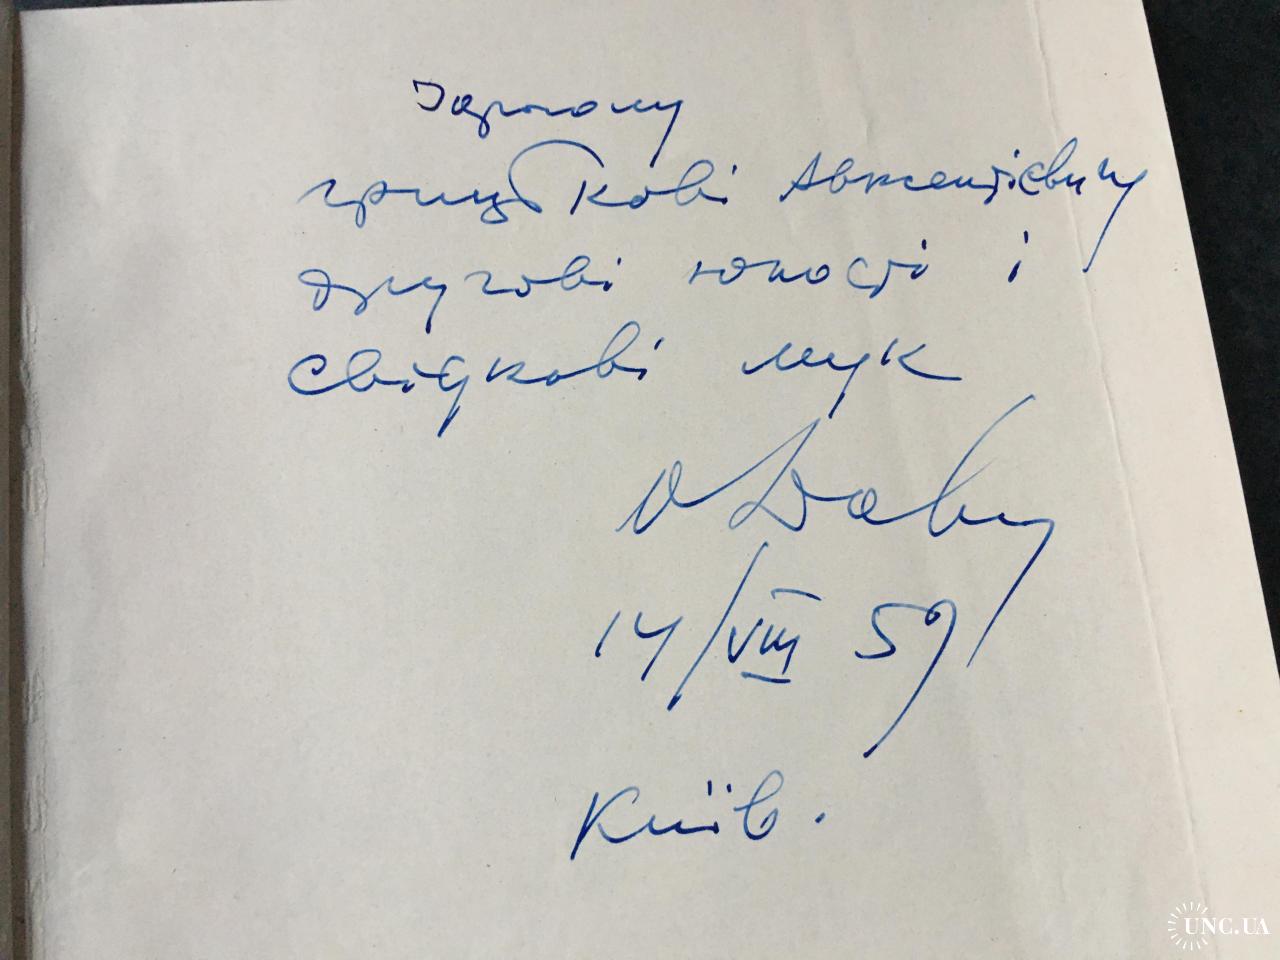 Гарному
грицькові Авксентієвичу
другові юності і
свідкові мук
14/VIII 59
Київ.
UNC.UA